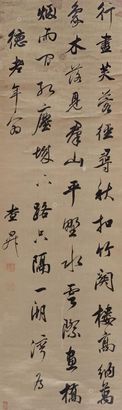 行盡芙蓉徑尋秋扣竹關樓高納萬
象木落見群山平野水雲際畫橋
烟雨間紅塵城下路只隔一湖灣為
德老年翁
查昇